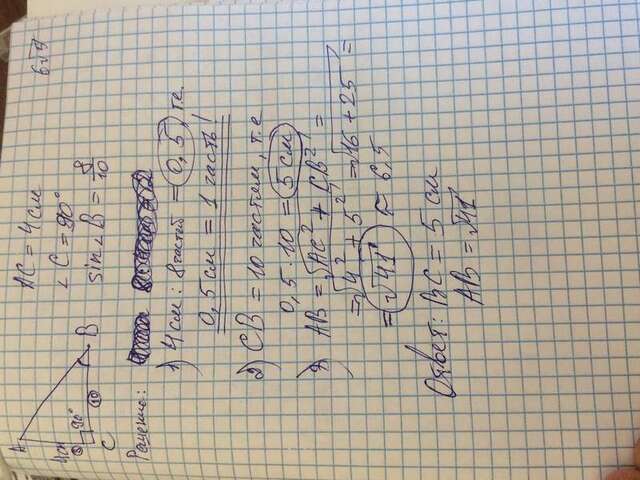 A
AC = 4 см
4см
8
90°
C
10
B
∠C = 90°
sin∠B = 8/10
Решение:
1) 4 см : 8 частей = 0,5, т.е.
0,5 см = 1 часть!
2) CB = 10 частям, т.е
0,5 · 10 = 5 см
3) AB = √AC² + CB² =
= √4² + 5² = √16 + 25 =
= √41 ≈ 6,5
Ответ: BC = 5 см
AB = √41